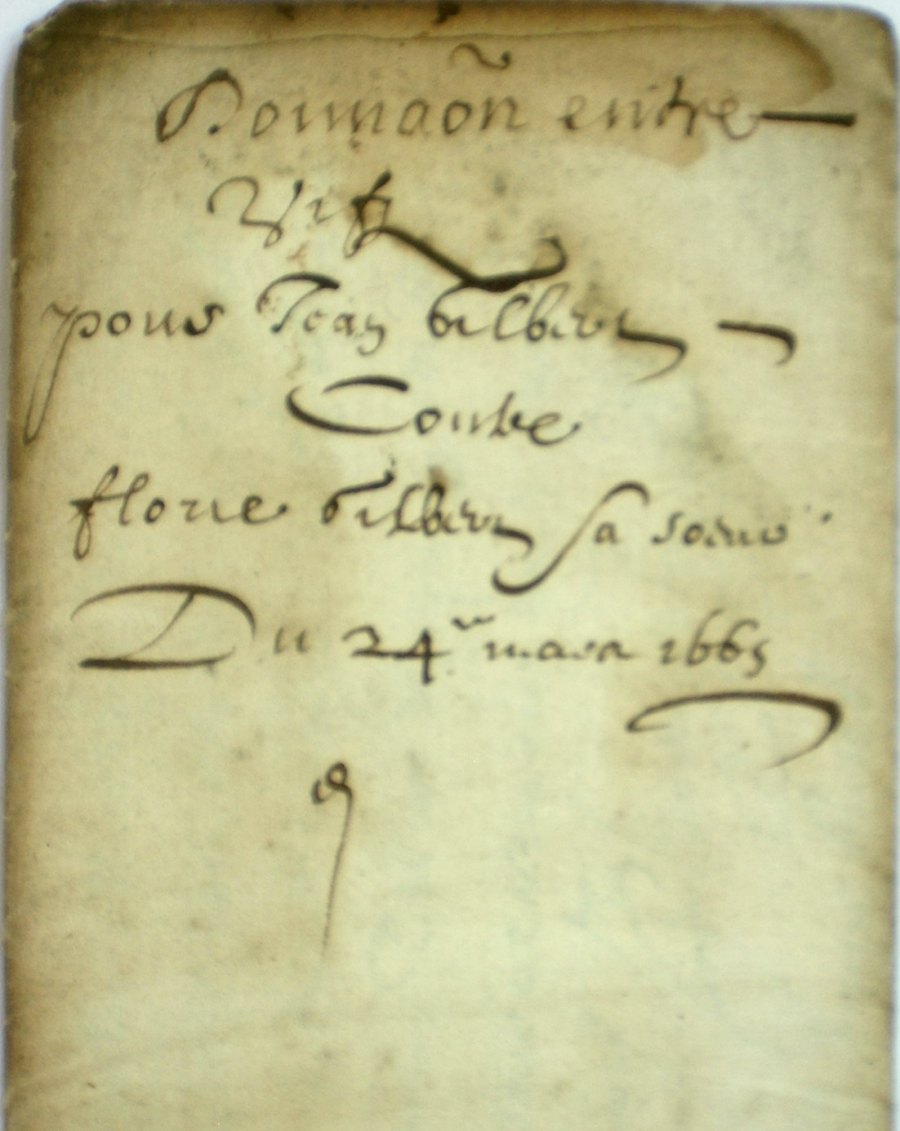 Donnaõn entre
Vifz
pour Jean Gilbert
Contre
florie Gilbert sa soeur
Du 24e mars 1665